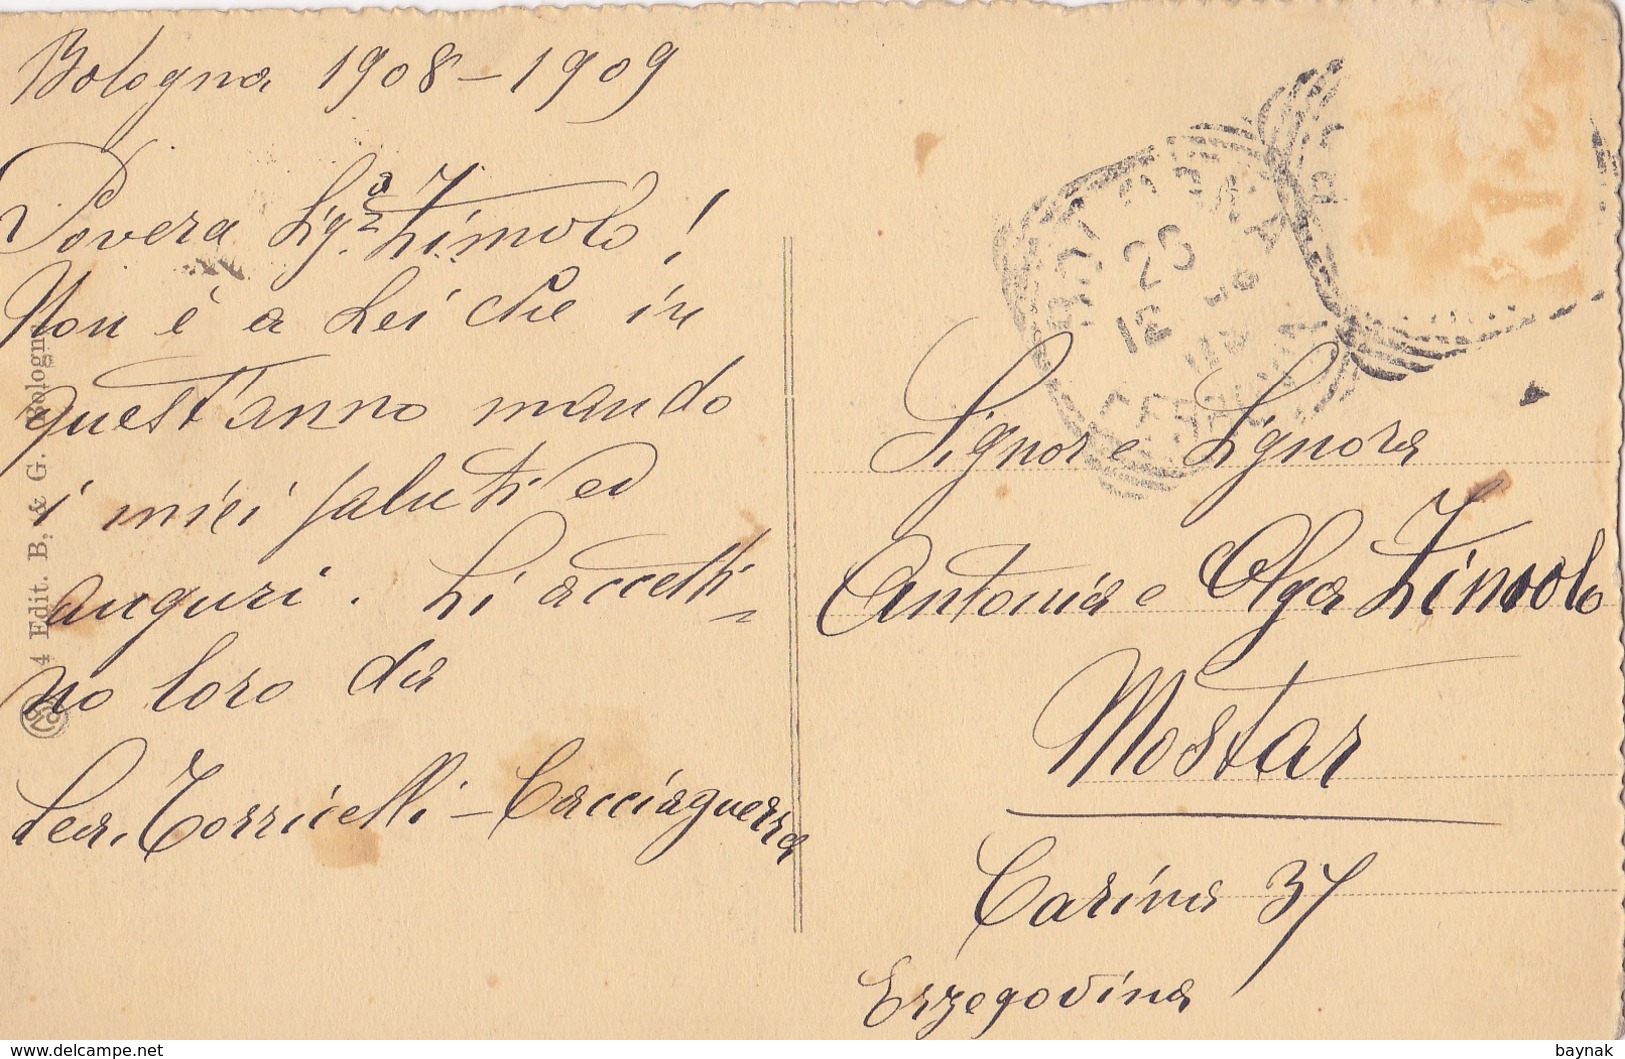 Bologna 1908-1909
Povera Sig.ra Zimolo!
Non è a Lei che in
quest'anno mando
i miei saluti ed
auguri. Li accetti-
no loro da
Lea Torricelli-Cacciaguerra
4 Edit. B, & G. Bologna
BOLOGNA
25
12
FERROVIA
Signor e Signora
Antonia e Olga Zimolo
Mostar
Carina 37
Erzegovina
baynak